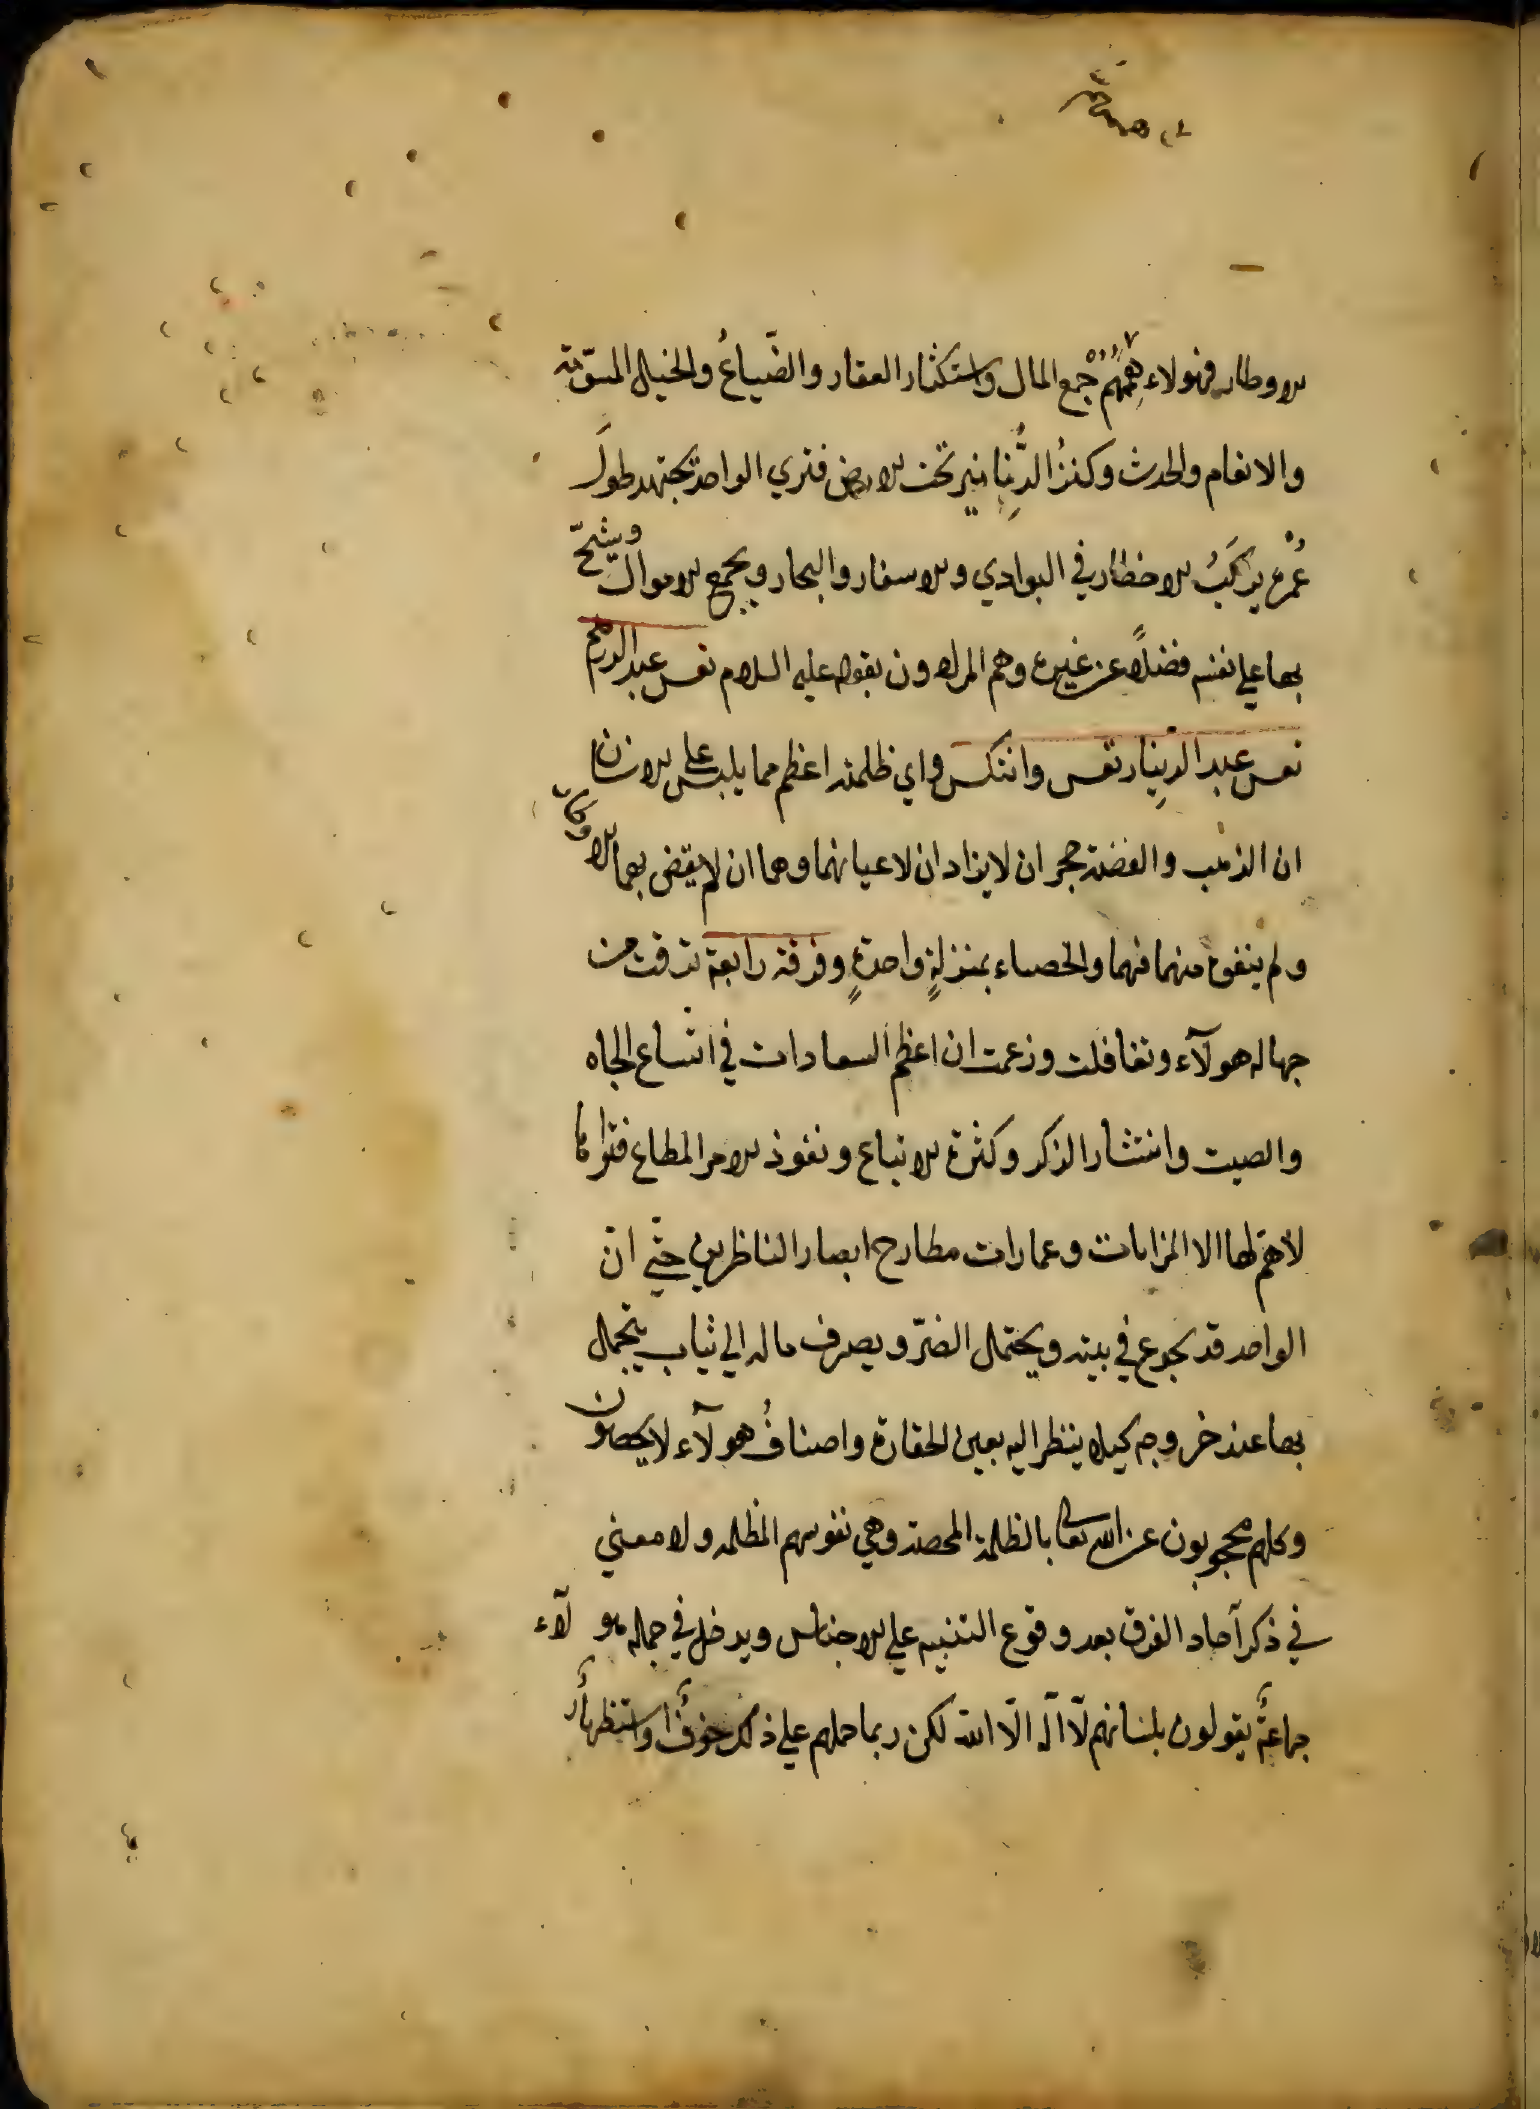 الاوطار فهولاء هممهم جمع المال واستكثار العقار والضياع والخيل المسوّمة
والانعام والحرث وكنز الدنانير تحت الارض فتري الواحد يجتهد طولَ
عُمُره يركبُ الاخطار في البوادي والاسفار والبحار ويجمع الاموال ويشحّ
بها علي نفسه فضلاً عن غيره وهم المرادون بقوله عليه السلام تعس عبد الدرهم
تعس عبد الدينار تعس وانتكس واي ظلمة اعظم مما يلبس علي الانسان
ان الذهب والفضة حجران لا يرادان لاعيانهما وهما ان لم يقض بهما الاوطار
ولم ينفق منهما فهما والحصباء بمنزلةٍ واحدةٍ وفرقة رابعة ترقت من
جهالة هولآء وتغافلت وزعمت ان اعظم السعادات في اتساع الجاه
والصيت وانتشار الذكر وكثرة الاتباع ونفوذ الامر المطاع فتراها
لا همّ لها الا المراءات وعمارات مطارح ابصار الناظرين حتّي انّ
الواحد قد يجوع في بيته ويحتمل الضرّ ويصرف ماله الي ثياب يتجمل
بها عند خروجه كيلا ينظر اليه بعين الحقارة واصنافُ هولآء لا يحصون
وكلهم محجوبون عن الله تعالي بالظلمة المحضة وهي نفوسهم المظلمة ولا معني
في ذكر آحاد الفرق بعد وقوع التنبيه علي الاجناس ويدخل في جملة هولآء
جماعةٌ يقولون بلسانهم لآ اله الّا الله لكن ربما حملهم علي ذلك خوفٌ او استظهارٌ